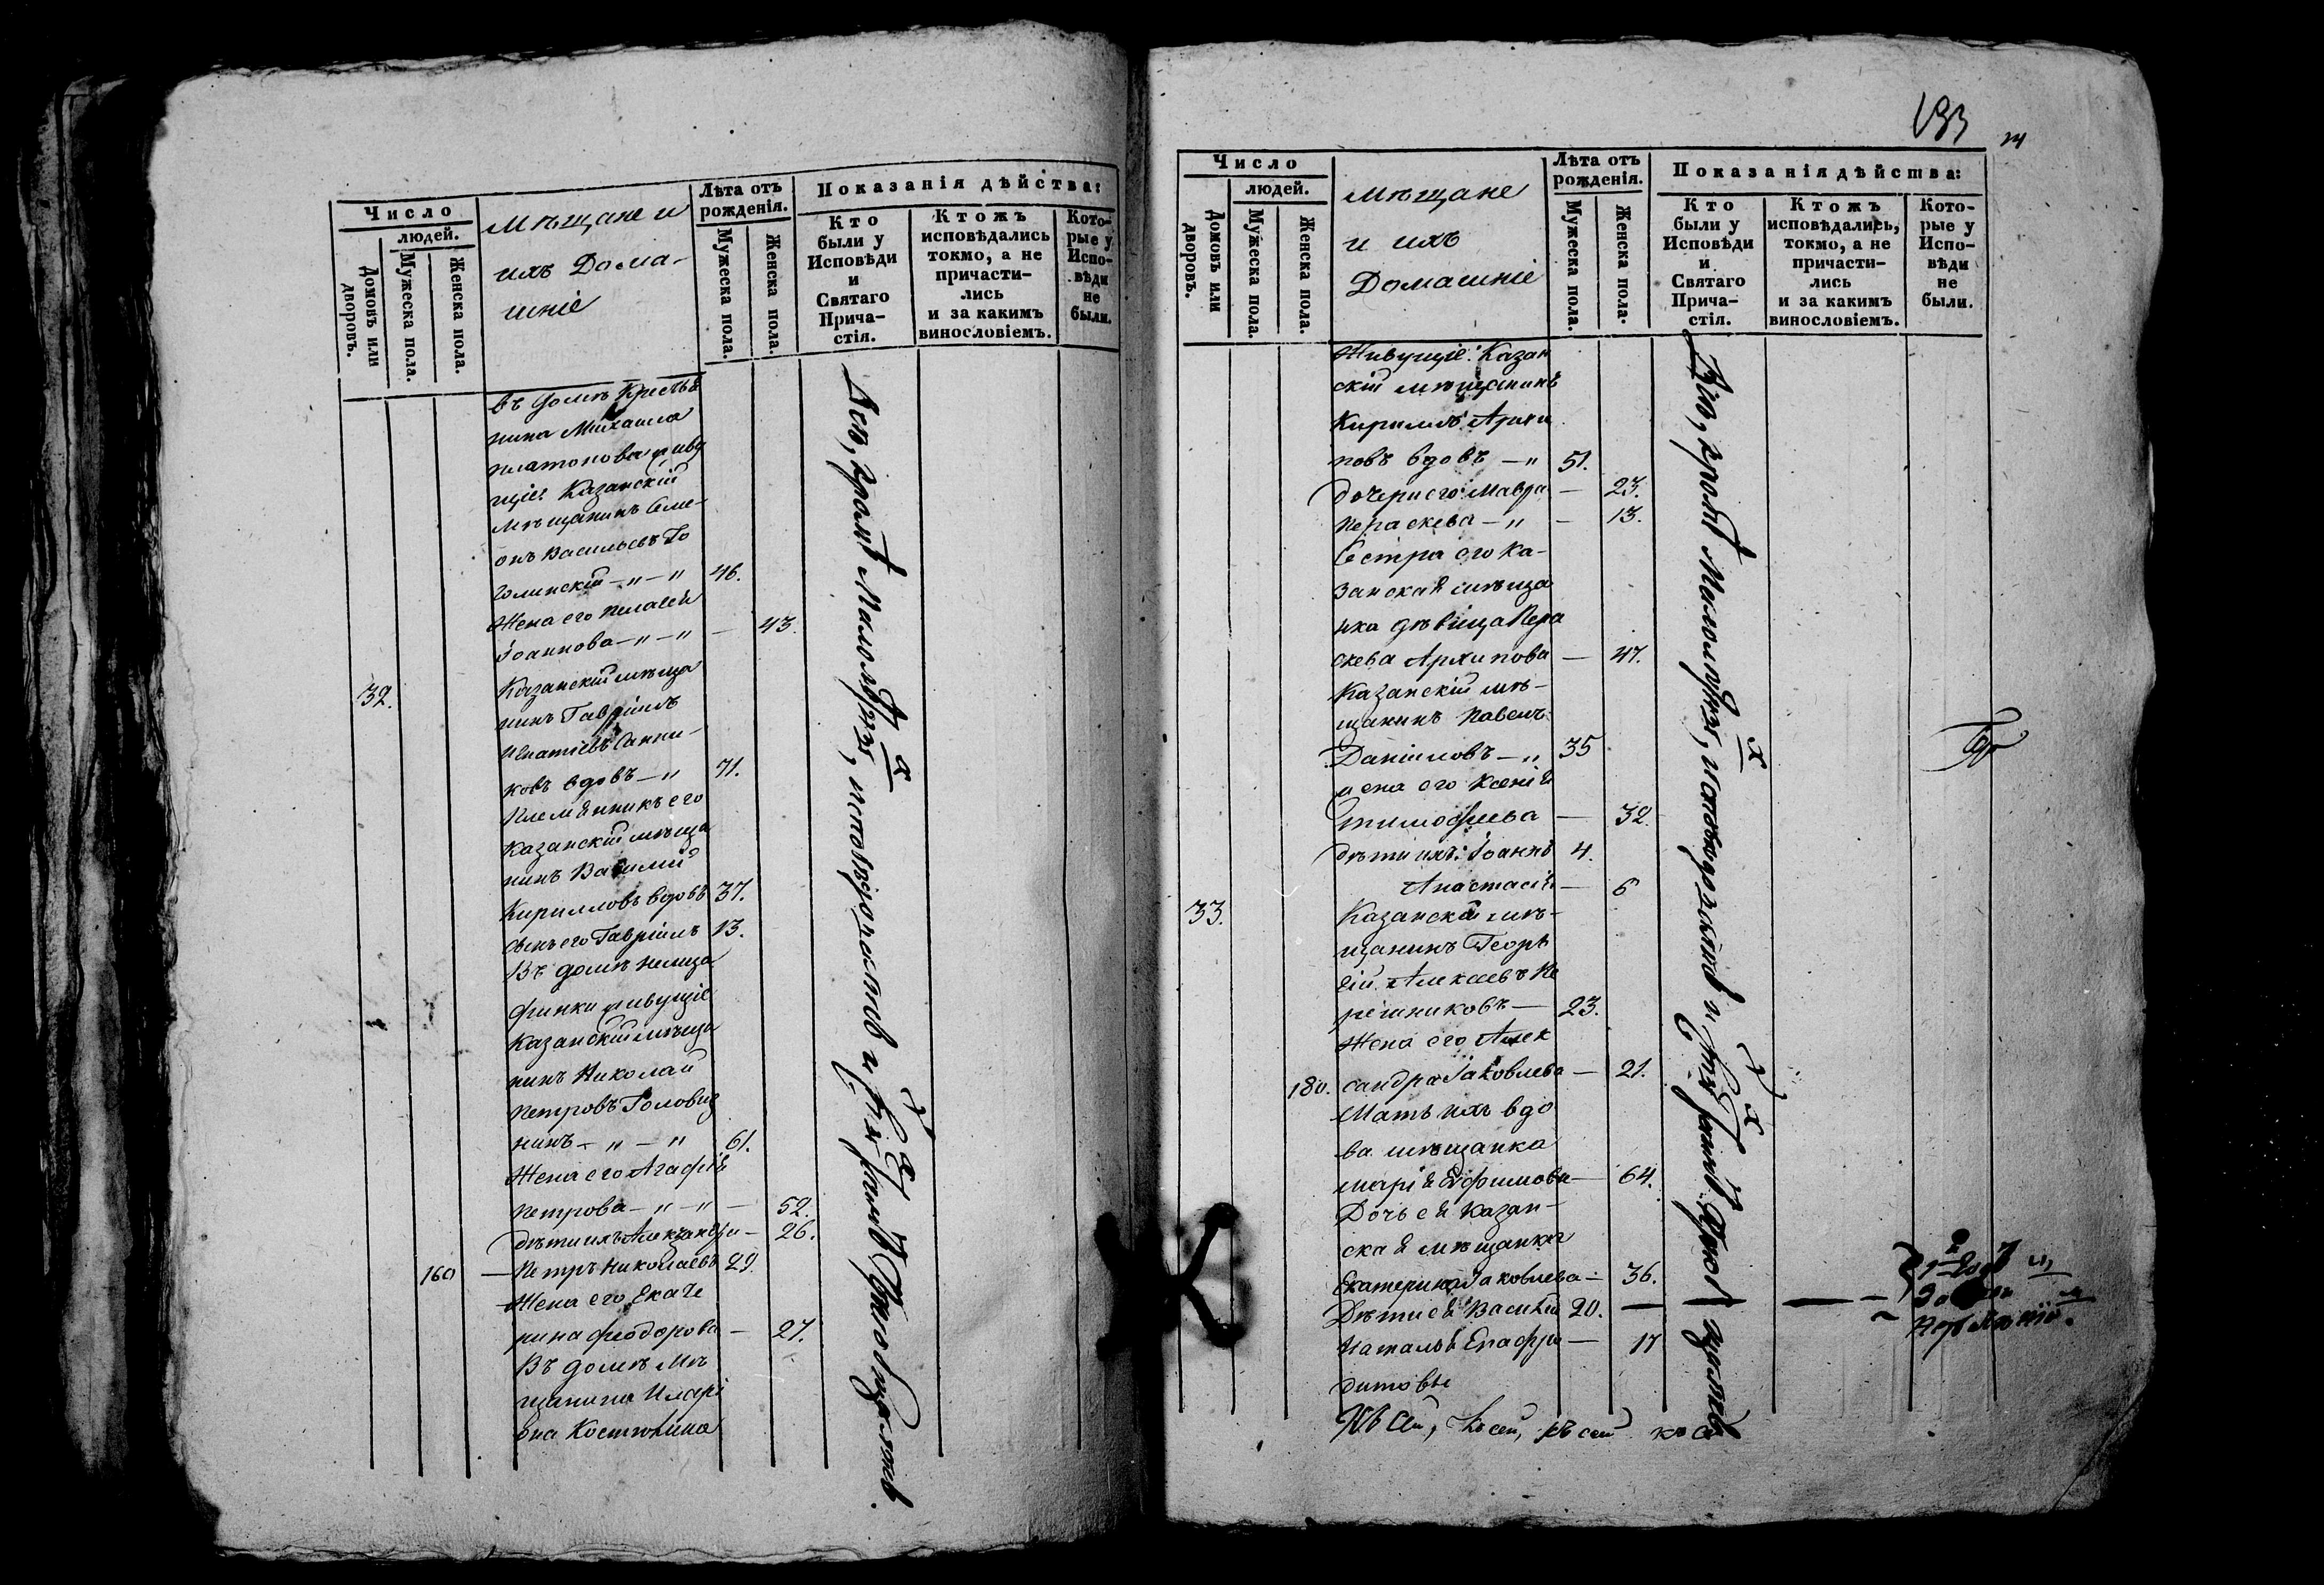 Число
людей.
Домовъ или дворовъ.
Мужеска пола.
Женска пола.
Мѣщане и
ихъ Дома-
шніе
Лѣта отъ
рожденія.
Мужеска пола.
Женска пола.
Показанія дѣйства:
Кто
были у
Исповѣди
и
Святаго
Прича-
стія.
Ктожъ
исповѣдались
токмо, а не
причасти-
лись
и за какимъ
винословіемъ.
Кото-
рые у
Испо-
вѣди
не
были.
въ домѣ Крестья
нина Михаила
Платонова живу
щіе: Казанскій
Мѣщанинъ Симе-
онъ Васильевъ Го
голинскій 46.
Жена его Пелагея
Іоаннова 43.
32. Казанскій мѣща
нинъ Гавріилъ
Игнатіевъ
ковъ вдовъ 71.
Племянникъ его
Казанскій мѣща
нинъ Василій
Кирилловъ вдовъ 37.
сынъ его Гавріилъ 13.
Въ домѣ
живущіе
Казанскій мѣща
нинъ Николай
Петровъ Головиз
нинъ 61.
Жена его Агафія
Петрова 52.
дѣти ихъ Александра 26.
160 Петръ Николаевъ 29.
Жена его Екате
рина Феодорова 27.
Въ домѣ Мѣ
щанина Иларі
она Костюнина
Всѣ, кромѣ Малолѣтнихъ, исповѣдались и
133
Число
людей.
Домовъ или дворовъ.
Мужеска пола.
Женска пола.
Мѣщане
и ихъ
Домашніе
Лѣта отъ
рожденія.
Мужеска пола.
Женска пола.
Показанія дѣйства:
Кто
были у
Исповѣди
и
Святаго
Прича-
стія.
Ктожъ
исповѣдались,
токмо, а не
причасти-
лись
и за какимъ
винословіемъ.
Кото-
рые у
Испо-
вѣди
не
были.
Живущіе: Казан
скій мѣщанинъ
Кириллъ Архи
повъ вдовъ 51.
дочери его: Мавра 23.
Параскева 13.
Сестра его Ка-
занская мѣща
нка дѣвица Пара
скева Архипова 47.
Казанскій мѣ-
щанинъ Павелъ
Даніиловъ 35
жена его Ксенія
Тимофеева 32.
дѣти ихъ: Іоаннъ 4.
Анастасія 6
33. Казанскій мѣ-
щанинъ Георг
ій Алексеевъ Пе
решниковъ 23.
Жена его Алек
180. сандра Іаковлева 21.
Мать ихъ вдо
ва мѣщанка
Марія Ефимова 64.
Дочь ея Казан-
ская мѣщанка
Екатерина Іаковлева 36.
Дѣти ея: Василій 20.
Наталья Епафро 17
дитовы
Всѣ, кромѣ Малолѣтнихъ, исповѣдались и